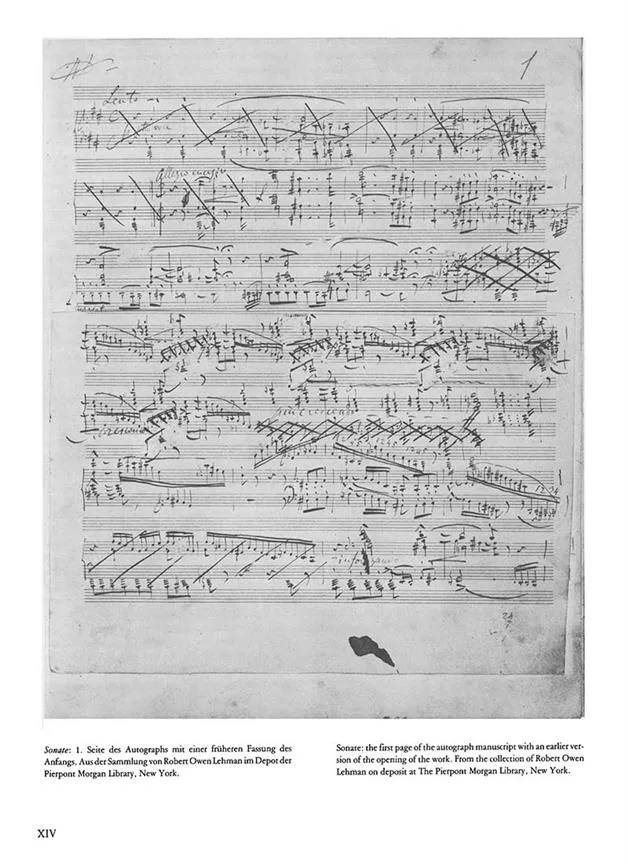 1
Lento
Allegro energico
più crescendo
crescendo
Sonate: 1. Seite des Autographs mit einer früheren Fassung des
Anfangs. Aus der Sammlung von Robert Owen Lehman im Depot der
Pierpont Morgan Library, New York.
Sonate: the first page of the autograph manuscript with an earlier ver-
sion of the opening of the work. From the collection of Robert Owen
Lehman on deposit at The Pierpont Morgan Library, New York.
XIV